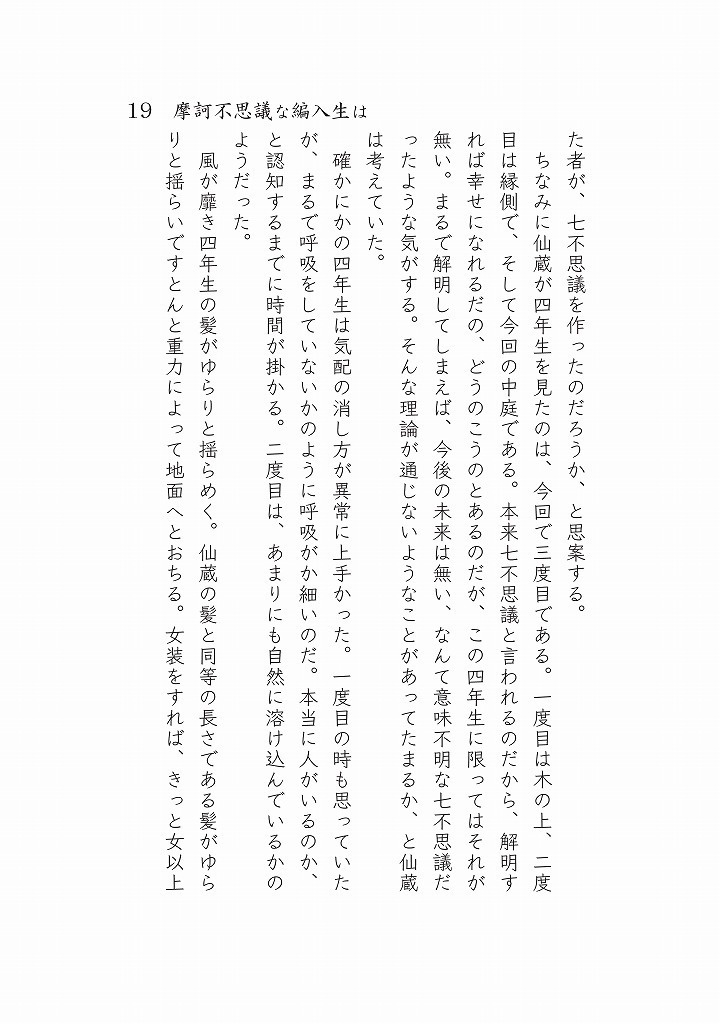 19 摩訶不思議な編入生は
た者が、七不思議を作ったのだろうか、と思案する。
ちなみに仙蔵が四年生を見たのは、今回で三度目である。一度目は木の上、二度
目は縁側で、そして今回の中庭である。本来七不思議と言われるのだから、解明す
れば幸せになれるだの、どうのこうのとあるのだが、この四年生に限ってはそれが
無い。まるで解明してしまえば、今後の未来は無い、なんて意味不明な七不思議だ
ったような気がする。そんな理論が通じないようなことがあってたまるか、と仙蔵
は考えていた。
確かにかの四年生は気配の消し方が異常に上手かった。一度目の時も思っていた
が、まるで呼吸をしていないかのように呼吸がか細いのだ。本当に人がいるのか、
と認知するまでに時間が掛かる。二度目は、あまりにも自然に溶け込んでいるかの
ようだった。
風が靡き四年生の髪がゆらりと揺らめく。仙蔵の髪と同等の長さである髪がゆら
りと揺らいですとんと重力によって地面へとおちる。女装をすれば、きっと女以上